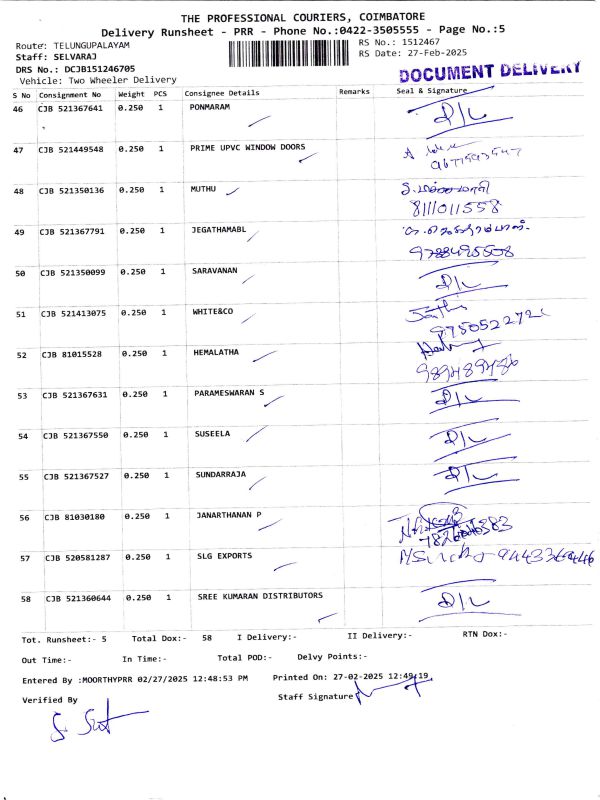 THE PROFESSIONAL COURIERS, COIMBATORE
Delivery Runsheet - PRR - Phone No.:0422-3505555 - Page No.:5
Route: TELUNGUPALAYAM RS No.: 1512467
Staff: SELVARAJ RS Date: 27-Feb-2025
DRS No.: DCJB151246705
Vehicle: Two Wheeler Delivery DOCUMENT DELIVERY
S No Consignment No Weight PCS Consignee Details Remarks Seal & Signature
46 CJB 521367641 0.250 1 PONMARAM D/L
47 CJB 521449548 0.250 1 PRIME UPVC WINDOW DOORS
48 CJB 521350136 0.250 1 MUTHU
8111011558
49 CJB 521367791 0.250 1 JEGATHAMABL
9788495508
50 CJB 521350099 0.250 1 SARAVANAN D/L
51 CJB 521413075 0.250 1 WHITE&CO
52 CJB 81015528 0.250 1 HEMALATHA
53 CJB 521367631 0.250 1 PARAMESWARAN S D/L
54 CJB 521367550 0.250 1 SUSEELA D/L
55 CJB 521367527 0.250 1 SUNDARRAJA D/L
56 CJB 81030180 0.250 1 JANARTHANAN P
57 CJB 520581287 0.250 1 SLG EXPORTS
58 CJB 521360644 0.250 1 SREE KUMARAN DISTRIBUTORS D/L
Tot. Runsheet:- 5 Total Dox:- 58 I Delivery:- II Delivery:- RTN Dox:-
Out Time:- In Time:- Total POD:- Delvy Points:-
Entered By :MOORTHYPRR 02/27/2025 12:48:53 PM Printed On: 27-02-2025 12:49:19
Verified By Staff Signature